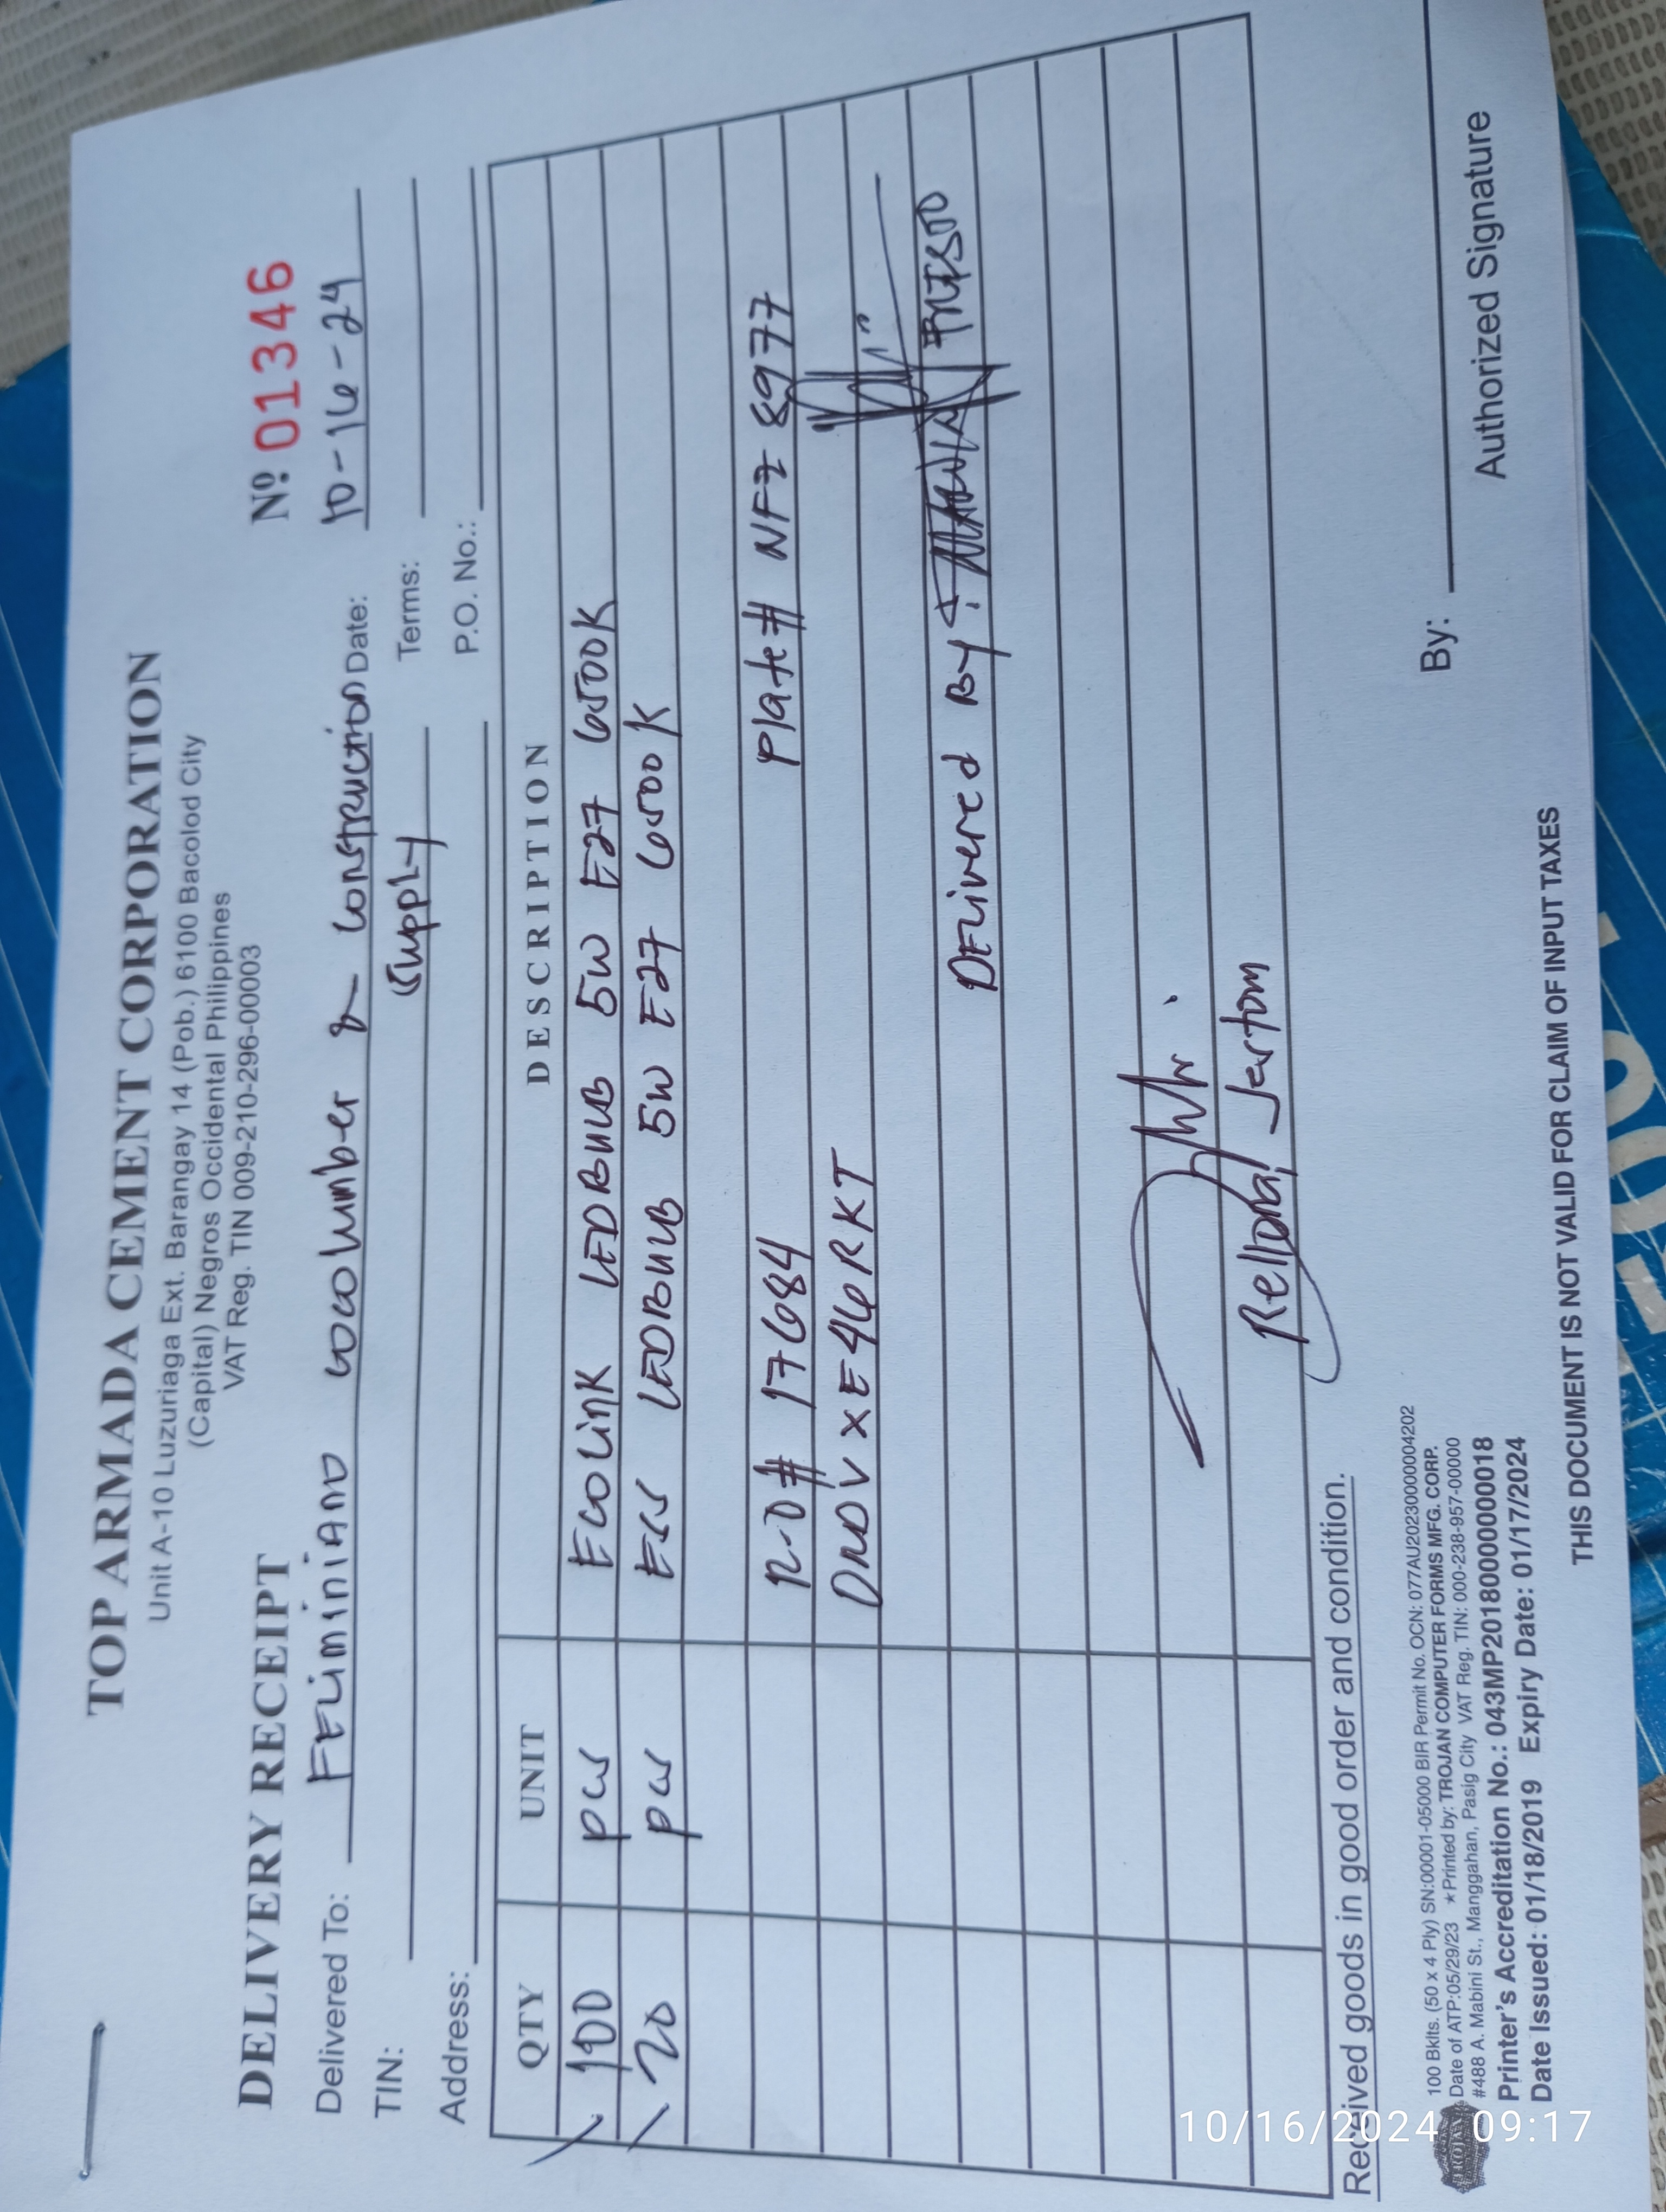 TOP ARMADA CEMENT CORPORATION
Unit A-10 Luzuriaga Ext. Barangay 14 (Pob.) 6100 Bacolod City
(Capital) Negros Occidental Philippines
VAT Reg. TIN 009-210-296-00003
DELIVERY RECEIPT
Nº 01346
Delivered To: FELiMiNiANO COCOLUMber & CONSTRUCTION Date: 10-16-24
Supply
TIN: Terms:
Address: P.O. No.:
QTY UNIT DESCRIPTION
100 pcs ECOLinK LEDBULB 5W E27 6500K
20 pcs ESS LEDBULB 5W E27 6500K
R-O# 17684 Plate# NFZ 8977
XE46RKT
DELivered By:
Jestom
Received goods in good order and condition.
By:
Authorized Signature
100 Bklts. (50 x 4 Ply) SN:00001-05000 BIR Permit No. OCN: 077AU20230000004202
Date of ATP:05/29/23 ★Printed by: TROJAN COMPUTER FORMS MFG. CORP.
#488 A. Mabini St., Manggahan, Pasig City VAT Reg. TIN: 000-238-957-00000
Printer's Accreditation No.: 043MP20180000000018
Date Issued: 01/18/2019 Expiry Date: 01/17/2024
TROJAN
THIS DOCUMENT IS NOT VALID FOR CLAIM OF INPUT TAXES
10/16/2024 09:17